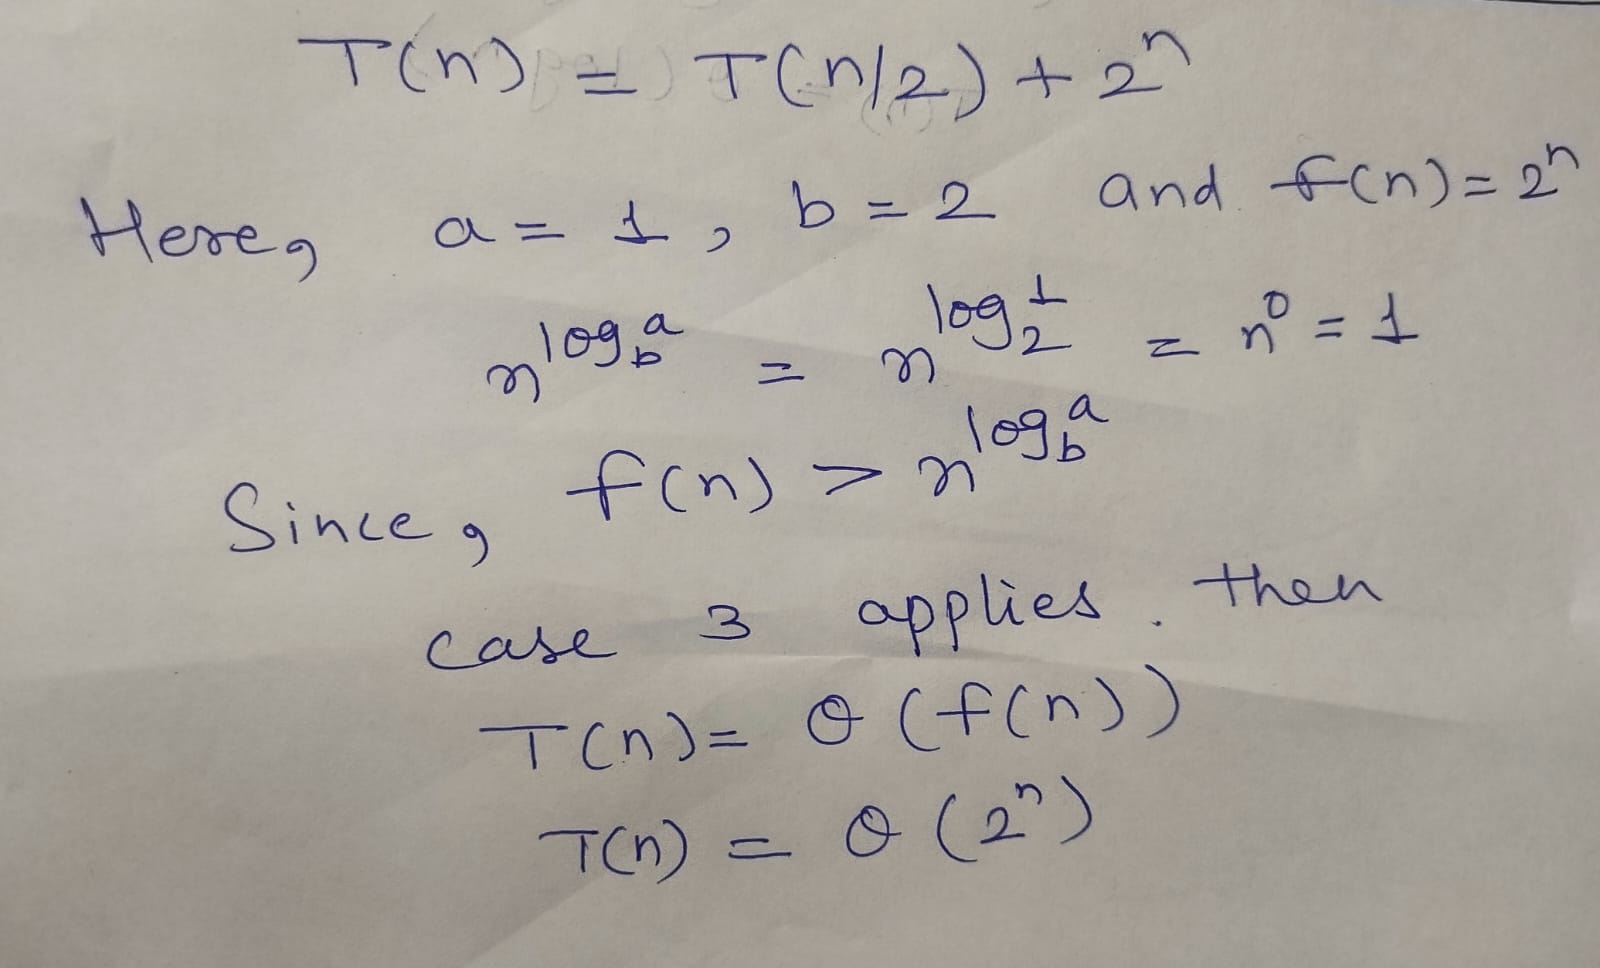 T(n) = T(n/2) + 2ⁿ
Here, a = 1, b = 2 and f(n) = 2ⁿ
n^log_b a = n^log_2 1 = n⁰ = 1
Since, f(n) > n^log_b a
case 3 applies. then
T(n) = θ(f(n))
T(n) = θ(2ⁿ)